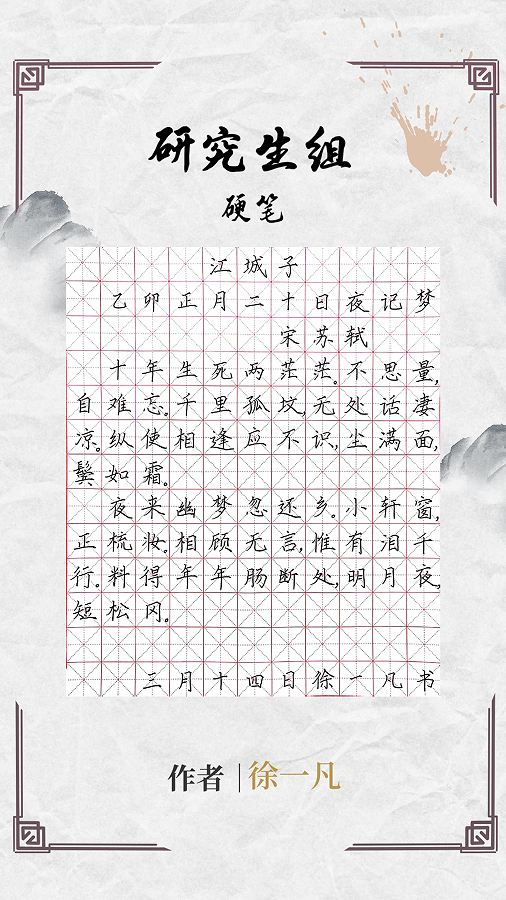 研究生组
硬笔
江城子
乙卯正月二十日夜记梦
宋苏轼
十年生死两茫茫。不思量,
自难忘。千里孤坟,无处话凄
凉。纵使相逢应不识,尘满面,
鬓如霜。
夜来幽梦忽还乡。小轩窗,
正梳妆。相顾无言,惟有泪千
行。料得年年肠断处,明月夜,
短松冈。
三月十四日徐一凡书
作者 | 徐一凡